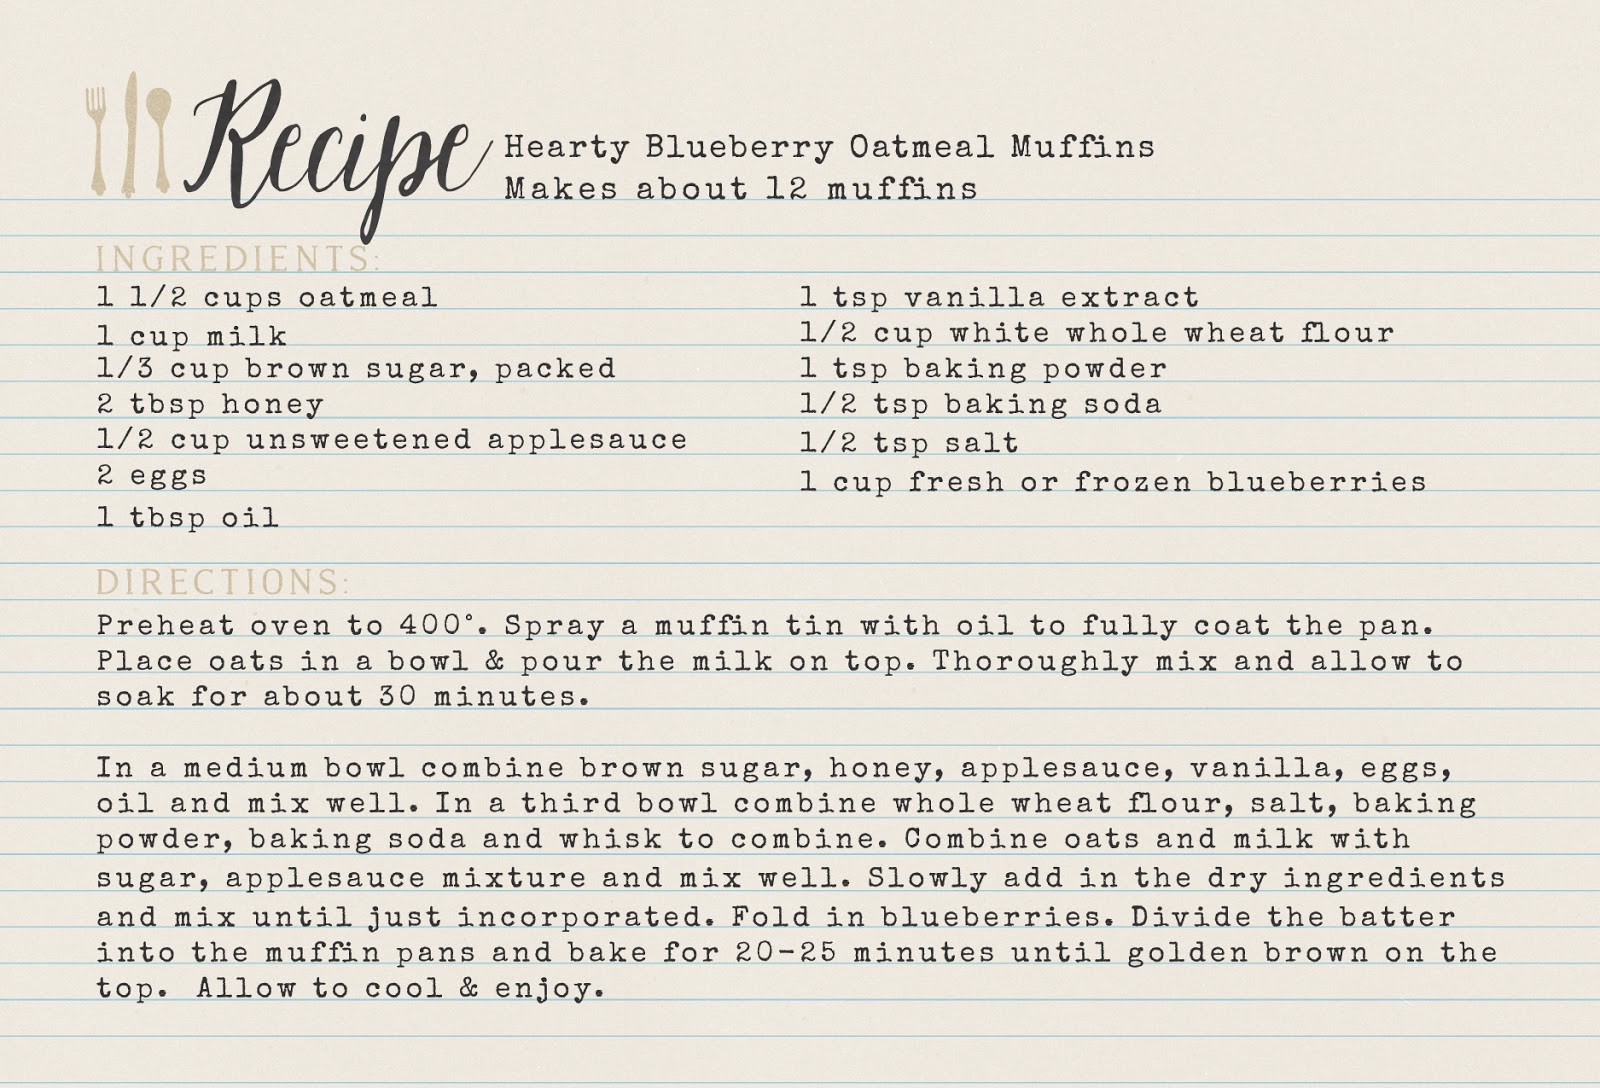 Recipe
Hearty Blueberry Oatmeal Muffins
Makes about 12 muffins
INGREDIENTS:
1 1/2 cups oatmeal
1 cup milk
1/3 cup brown sugar, packed
2 tbsp honey
1/2 cup unsweetened applesauce
2 eggs
1 tbsp oil
1 tsp vanilla extract
1/2 cup white whole wheat flour
1 tsp baking powder
1/2 tsp baking soda
1/2 tsp salt
1 cup fresh or frozen blueberries
DIRECTIONS:
Preheat oven to 400°. Spray a muffin tin with oil to fully coat the pan.
Place oats in a bowl & pour the milk on top. Thoroughly mix and allow to
soak for about 30 minutes.
In a medium bowl combine brown sugar, honey, applesauce, vanilla, eggs,
oil and mix well. In a third bowl combine whole wheat flour, salt, baking
powder, baking soda and whisk to combine. Combine oats and milk with
sugar, applesauce mixture and mix well. Slowly add in the dry ingredients
and mix until just incorporated. Fold in blueberries. Divide the batter
into the muffin pans and bake for 20-25 minutes until golden brown on the
top.  Allow to cool & enjoy.